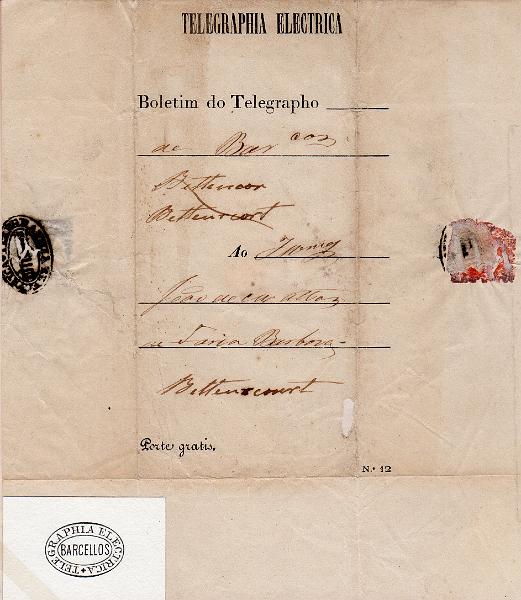 TELEGRAPHIA ELECTRICA
Boletim do Telegrapho
de Bar cos
Bettencor
Bettencourt
Ao
João de
de Faria Barboza
Bettencourt
Porte gratis.
N.º 12
TELEGRAPHIA ELECTRICA
BARCELLOS